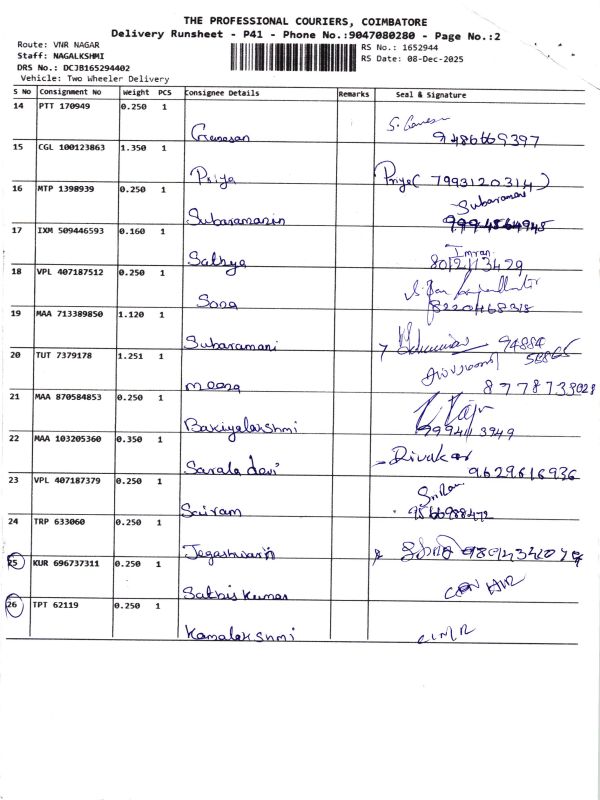 THE PROFESSIONAL COURIERS, COIMBATORE
Delivery Runsheet - P41 - Phone No.:9047080280 - Page No.:2
Route: VNR NAGAR
Staff: NAGALKSHMI
DRS No.: DCJB165294402
Vehicle: Two Wheeler Delivery
RS No.: 1652944
RS Date: 08-Dec-2025
S No Consignment No Weight PCS Consignee Details Remarks Seal & Signature
14 PTT 170949 0.250 1
Ganesan 9486669397
15 CGL 100123863 1.350 1
Priya Priya( 7993120314)
16 MTP 1398939 0.250 1 Subaramani
Subaramanin
17 IXM 509446593 0.160 1 Imran
Sathya
18 VPL 407187512 0.250 1
Sona 8220468318
19 MAA 713389850 1.120 1
Subaramani 94884
20 TUT 7379178 1.251 1
moosa
21 MAA 870584853 0.250 1
Bakiyalakshmi
22 MAA 103205360 0.350 1 Divakar
Sarala devi 9629616936
23 VPL 407187379 0.250 1
Sairam 9566988472
24 TRP 633060 0.250 1
25 KUR 696737311 0.250 1
Sathis kumar
26 TPT 62119 0.250 1
Kamalakshmi